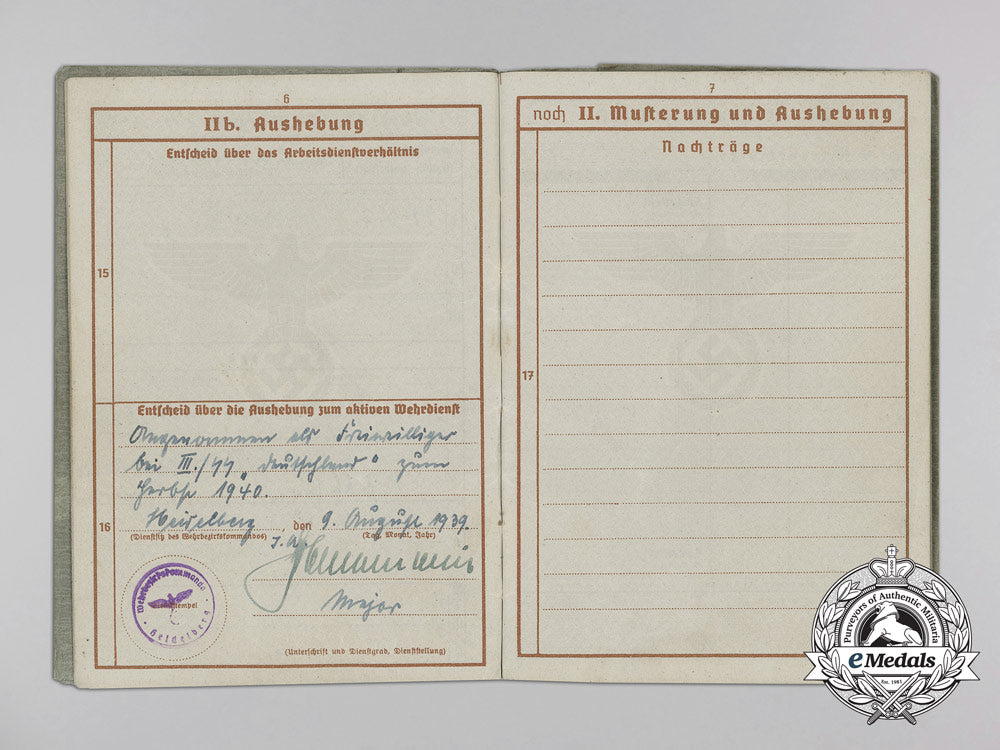 6
IIb. Aushebung
Entscheid über das Arbeitsdienstverhältnis
15
Entscheid über die Aushebung zum aktiven Wehrdienst
Angenommen als Freiwilliger
bei III./SS „Deutschland" zum
Herbst 1940.
16
Heidelberg, den 9. August 1939.
(Dienstsitz des Wehrbezirkskommandos) (Tag, Monat, Jahr)
Wehrbezirkskommando
Heidelberg
Major
(Unterschrift und Dienstgrad, Dienststellung)
7
noch II. Musterung und Aushebung
Nachträge
17
Purveyors of Authentic Militaria
eMedals
Est. 1981